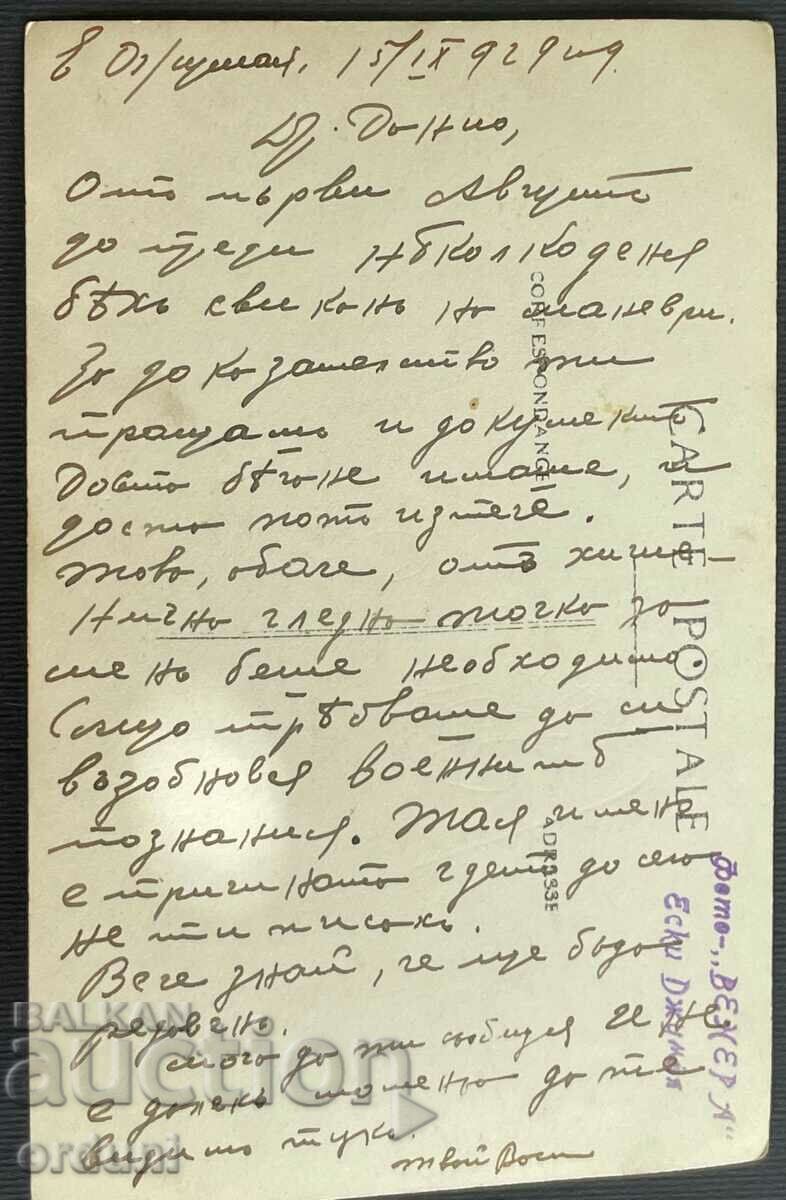 15/IX 929 год.
Др. Данчо,
Отъ първи Августъ
до преди нѣколко деня
бѣхъ свиканъ на маневри.
За доказателство ти
пращамъ и документъ
Доста бѣгане имаше, и
доста потъ изтече.
Това, обаче, отъ хигие-
нична гледна точка за
менъ беше необходимо
Също трѣбваше да си
възобновя военнитѣ
познания. Тая именно
е причината гдето до сега
не ти писахъ.
Вече знай, че ще бѫда
редовенъ.
мога да ти съобщя че не
е далекъ момента да те
видимъ тукъ.
твой Васи
CARTE POSTALE
CORRESPONDANCE
ADRESSE
Фото-„ВЕНЕРА"
Ески Джумая
BALKAN
auction
orduni